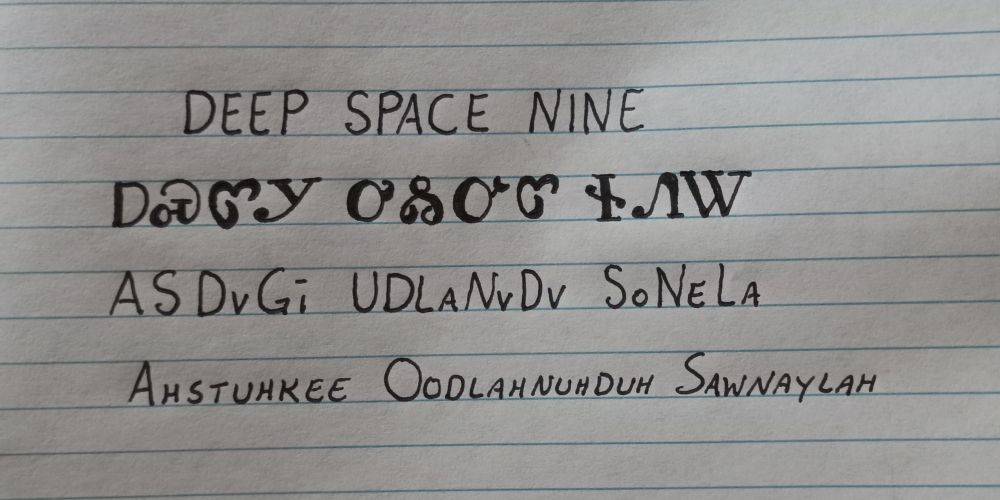 DEEP SPACE NINE
ᎠᏍᏛᎩ ᎤᎴᏅᏛ ᏐᏁᎳ
ASDvGi UDLaNvDv SoNeLa
Ahstuhkee Oodlahnuhduh Sawnaylah